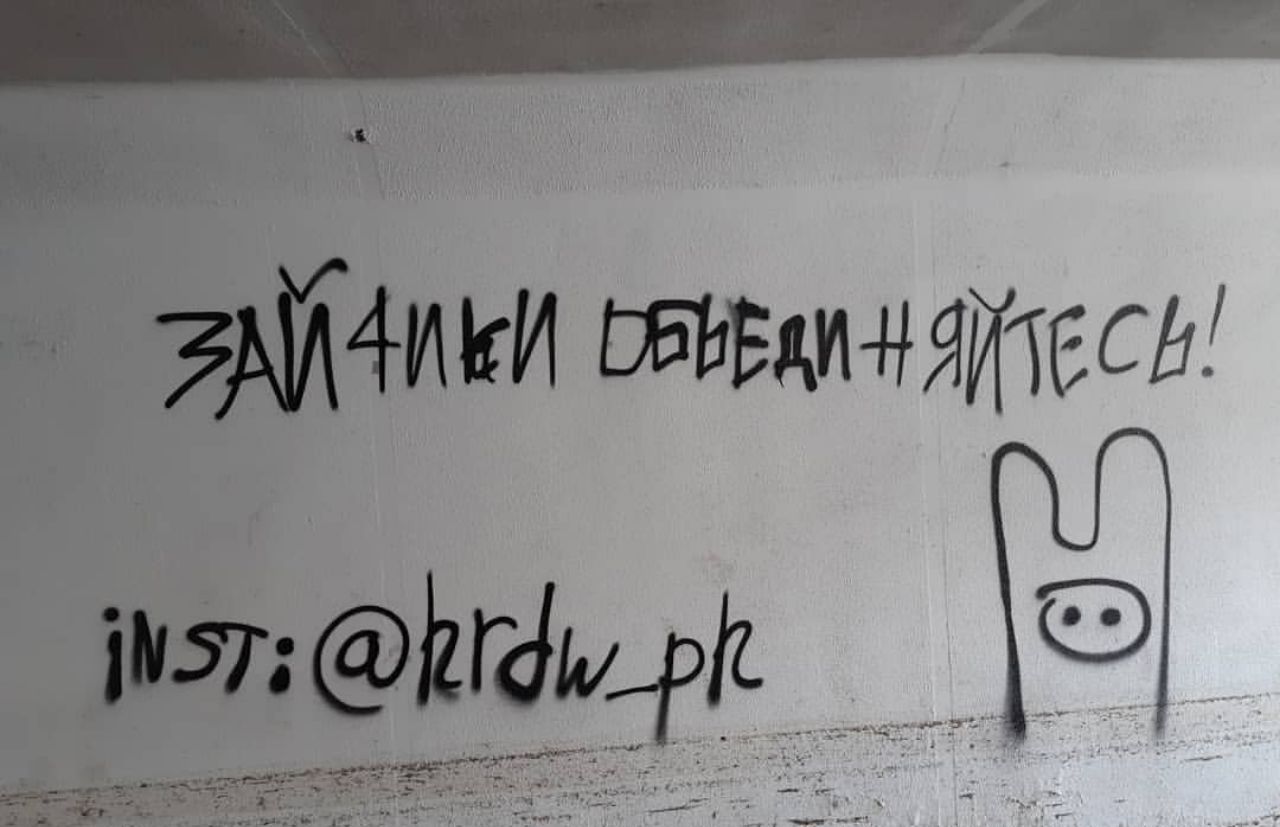 ЗАЙЧИКИ ОБЬЕДИНЯЙТЕСЬ!
iNST: @krdw_pk